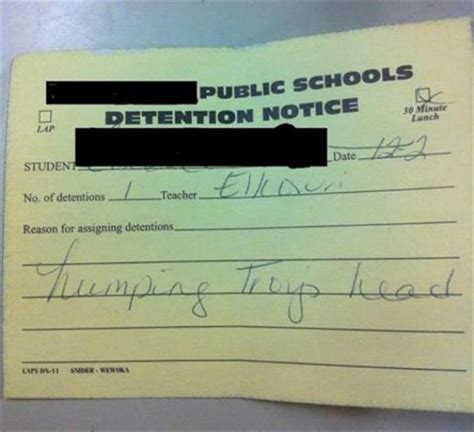 PUBLIC SCHOOLS
DETENTION NOTICE
LAP
30 Minute
Lunch
STUDENT Date 12-2
No. of detentions 1 Teacher
Reason for assigning detentions
humping Troys head
LAPS DN-11 SNIDER - WEWOKA